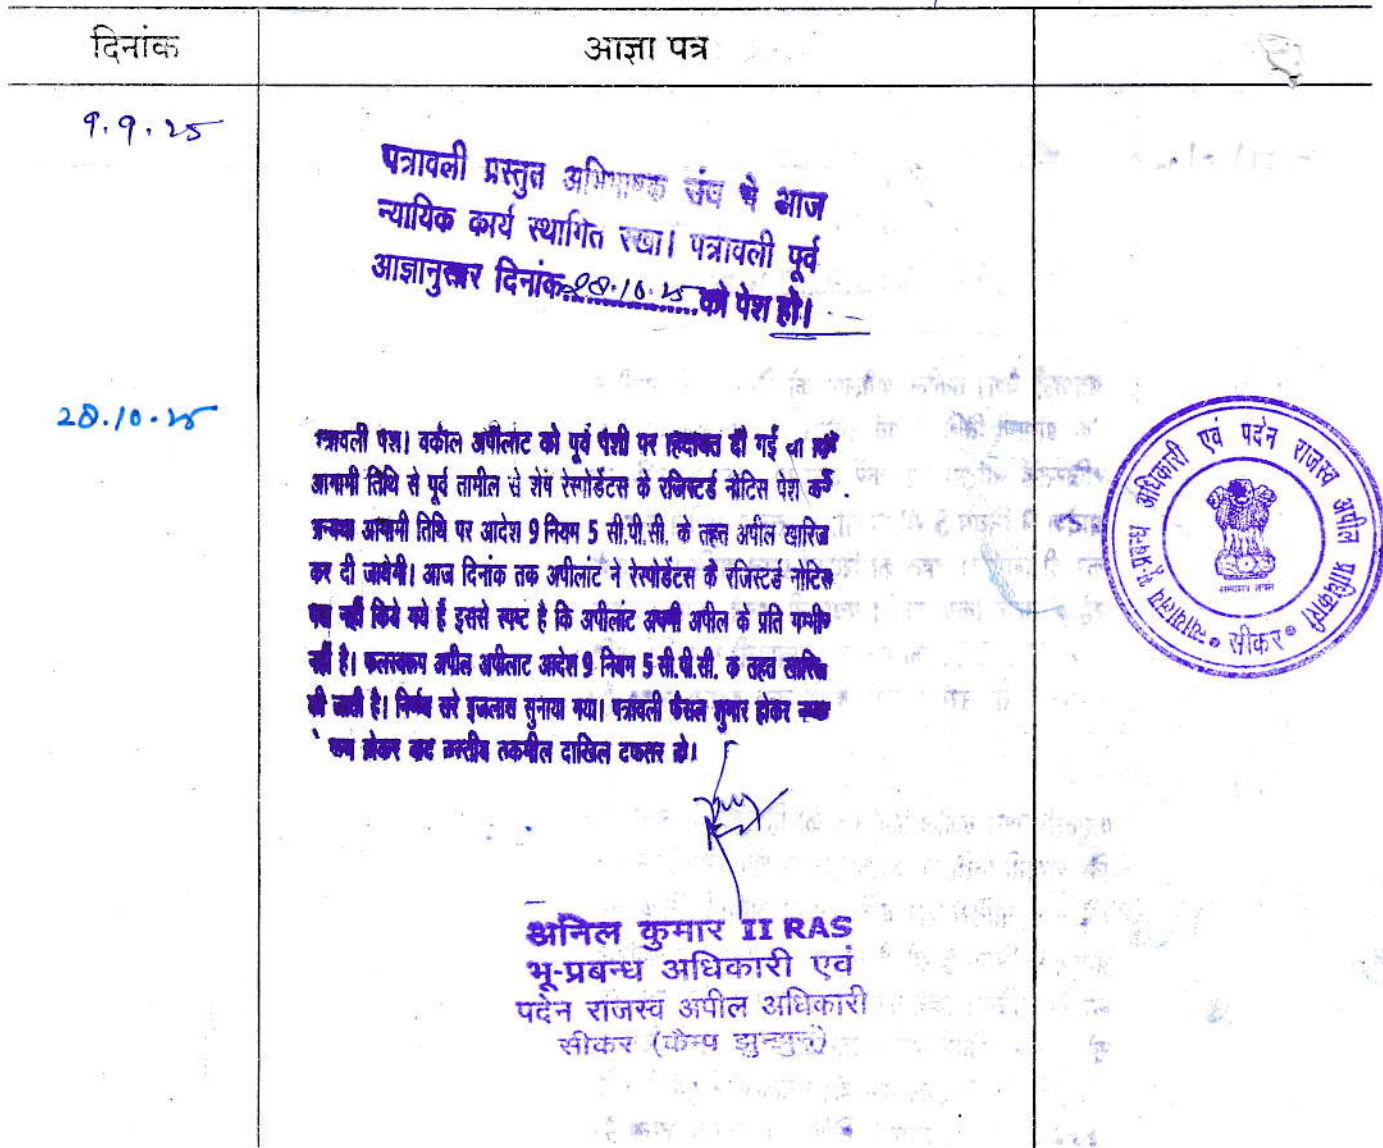 दिनांक
आज्ञा पत्र
9.9.25
पत्रावली प्रस्तुत अभिभाषक संघ ने आज
न्यायिक कार्य स्थागित रखा। पत्रावली पूर्व
आज्ञानुसार दिनांक 28.10.25 को पेश हो।
28.10.25
पत्रावली पेश। वकील अपीलाट को पूर्व पेशी पर हिदायत दी गई थी कि
आगामी तिथि से पूर्व तामील से शेष रेस्पोडेंटस के रजिस्टर्ड नोटिस पेश करें
अन्यथा आगामी तिथि पर आदेश 9 नियम 5 सी.पी.सी. के तहत अपील खारिज
कर दी जावेगी। आज दिनांक तक अपीलांट ने रेस्पोडेंटस के रजिस्टर्ड नोटिस
पेश नहीं किये गये हैं इससे स्पष्ट है कि अपीलांट अपनी अपील के प्रति गम्भीर
नहीं है। फलस्वरूप अपील अपीलाट आदेश 9 नियम 5 सी.पी.सी. के तहत खारिज
की जाती है। निर्णय सरे इजलास सुनाया गया। पत्रावली फैसल शुमार होकर
होकर बाद तकमील दाखिल दफतर हो।
अनिल कुमार II RAS
भू-प्रबन्ध अधिकारी एवं
पदेन राजस्व अपील अधिकारी
सीकर (कैम्प झुन्झुनूं)
न्यायालय भू प्रबन्ध अधिकारी एवं पदेन राजस्व अपील प्राधिकारी
सत्यमेव जयते
सीकर